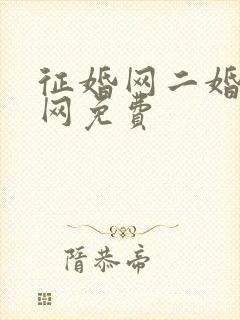 征婚网二婚
网免费
隋恭帝